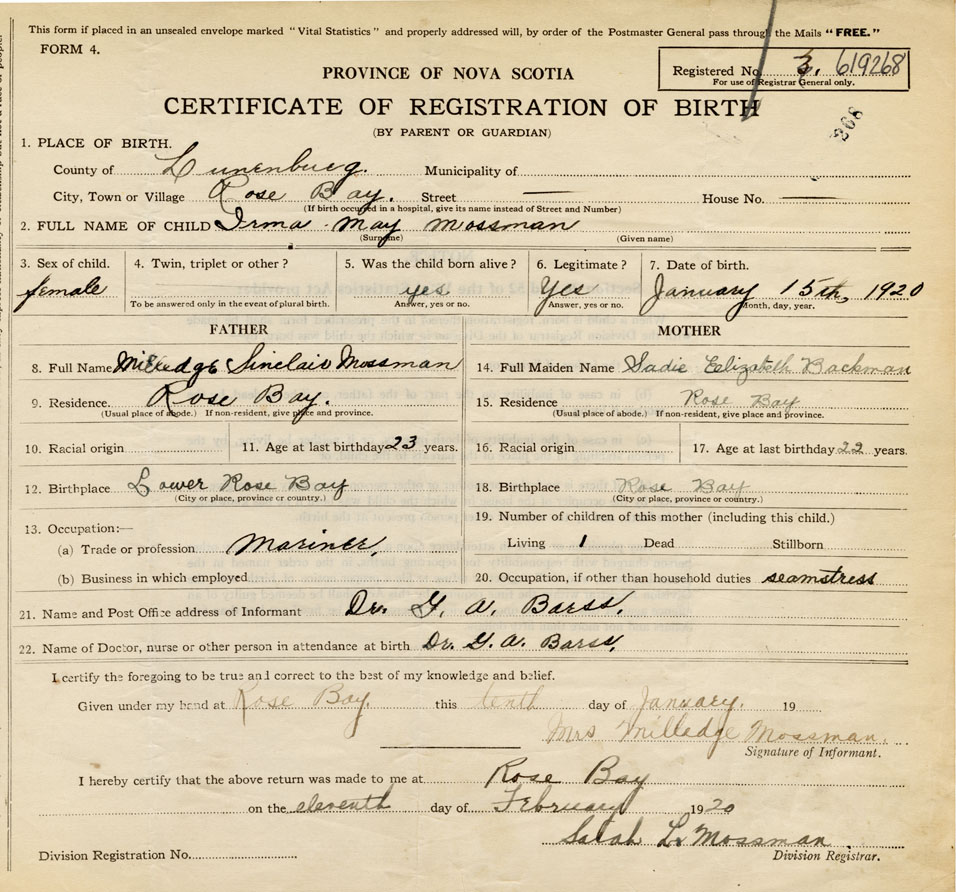 This form if placed in an unsealed envelope marked "Vital Statistics" and properly addressed will, by order of the Postmaster General pass through the Mails "FREE."
FORM 4.
Registered No. 3. 619268
For use of Registrar General only.
PROVINCE OF NOVA SCOTIA
CERTIFICATE OF REGISTRATION OF BIRTH
268
(BY PARENT OR GUARDIAN)
1. PLACE OF BIRTH.
County of Lunenburg. Municipality of
City, Town or Village Rose Bay. Street — House No. —
(If birth occurred in a hospital, give its name instead of Street and Number)
2. FULL NAME OF CHILD Irma May Mossman
(Surname) (Given name)
3. Sex of child. 4. Twin, triplet or other? 5. Was the child born alive? 6. Legitimate? 7. Date of birth.
female yes Yes January 15th, 1920
To be answered only in the event of plural birth. Answer, yes or no. Answer, yes or no. Month, day, year.
FATHER MOTHER
8. Full Name Milledge Sinclair Mossman 14. Full Maiden Name Sadie Elizabeth Backman
9. Residence. Rose Bay. 15. Residence Rose Bay
(Usual place of abode.) If non-resident, give place and province. (Usual place of abode.) If non-resident, give place and province.
10. Racial origin 11. Age at last birthday 23 years. 16. Racial origin 17. Age at last birthday 22 years.
12. Birthplace Lower Rose Bay 18. Birthplace Rose Bay
(City or place, province or country.) (City or place, province or country.)
13. Occupation:— 19. Number of children of this mother (including this child.)
(a) Trade or profession Mariner, Living 1 Dead Stillborn
(b) Business in which employed 20. Occupation, if other than household duties seamstress
21. Name and Post Office address of Informant Dr. G. A. Barss.
22. Name of Doctor, nurse or other person in attendance at birth Dr. G. A. Barss,
I certify the foregoing to be true and correct to the best of my knowledge and belief.
Given under my hand at Rose Bay. this tenth day of January. 19
Mrs Milledge Mossman.
Signature of Informant.
I hereby certify that the above return was made to me at Rose Bay
on the eleventh day of February 1920
Sarah L. Mossman
Division Registration No. Division Registrar.